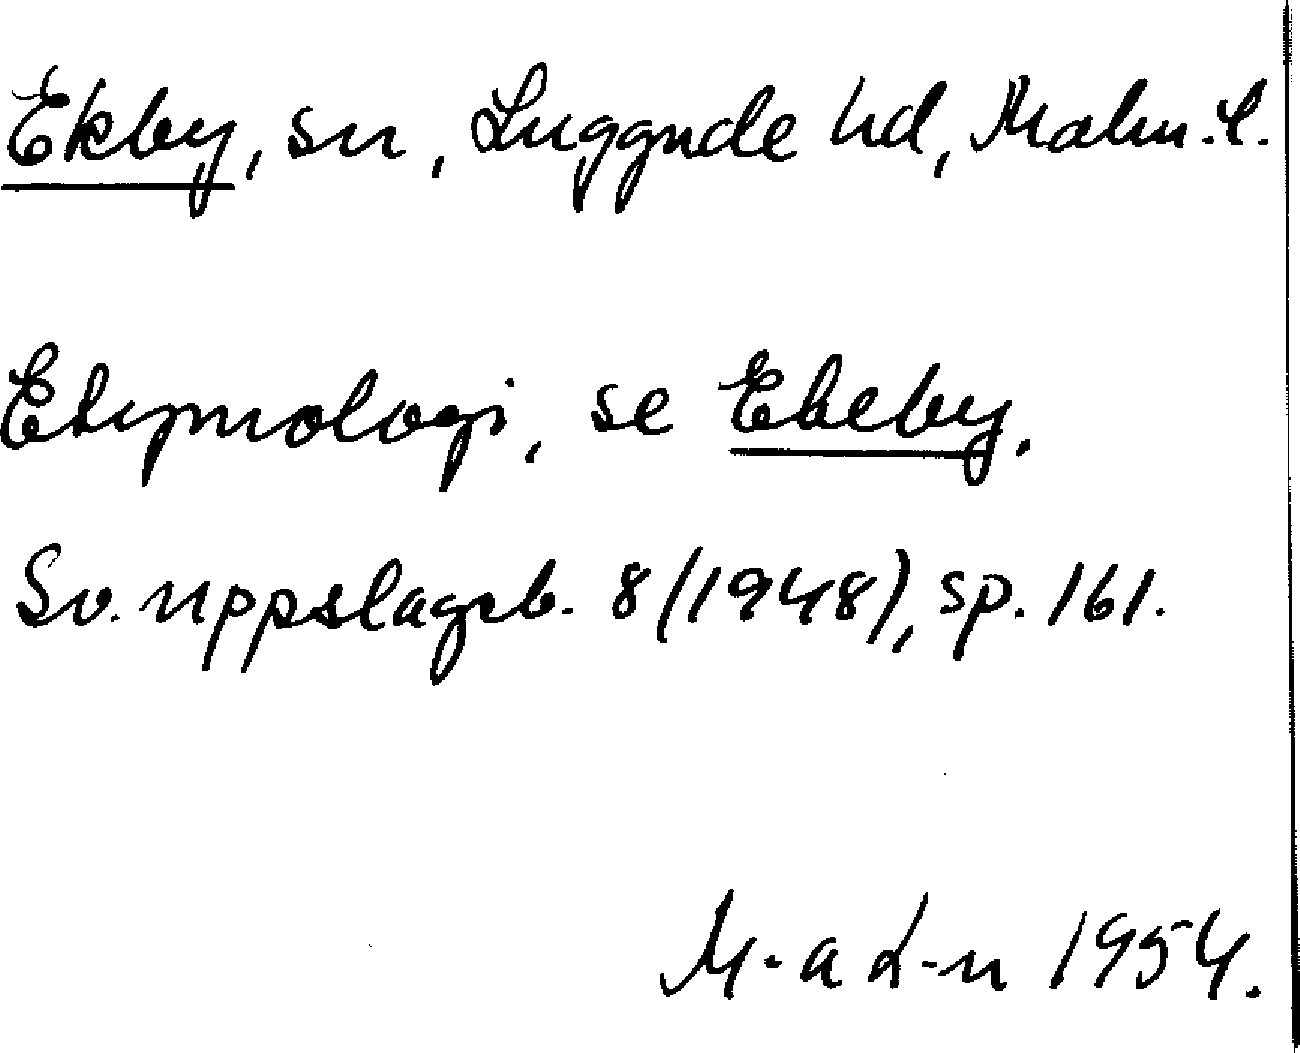 Ekby, sn, Luggude hd, Malm. l.
Etymologi, se Ekeby.
Sv. uppslagsb. 8 (1948), sp. 161.
M-a L-n 1954.